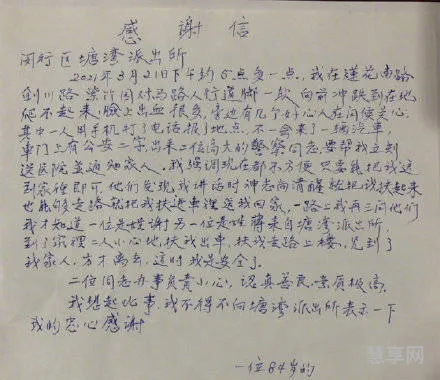 感謝信
闵行区塘湾派出所
2021年3月21日下午约5点多一点,我在莲花南路
剑川路 漈河因对马路人行道脚一软 向前冲跌到在地
爬不起来,脸上出血很多,旁边有几个好心人在问候关心,
其中一人用手机打了电话报了地点,不一会来了一辆汽车,
车门上有公安二字,出来二位高大的警察同志要帮我立刻
送医院并通知家人,我强调现在都不方便只要能把我送
到家终即可,他们发现我讲话时神志尚清醒就把我扶起来
也能够走路就把我扶进车裡送我回家,一路上我再三问他们
我才知道一位是姓谢另一位是姓蒋来自塘湾派出所,
到了家裡二人小心地扶我出车,扶我走路上楼,见到了
我家人,方才离去,这时我是安全了。
二位同志办事负责小心,认真善良,素质极高,
我想起此事,我不得不向塘湾派出所表示一下
我的忠心感谢
一位84岁的
慧享网